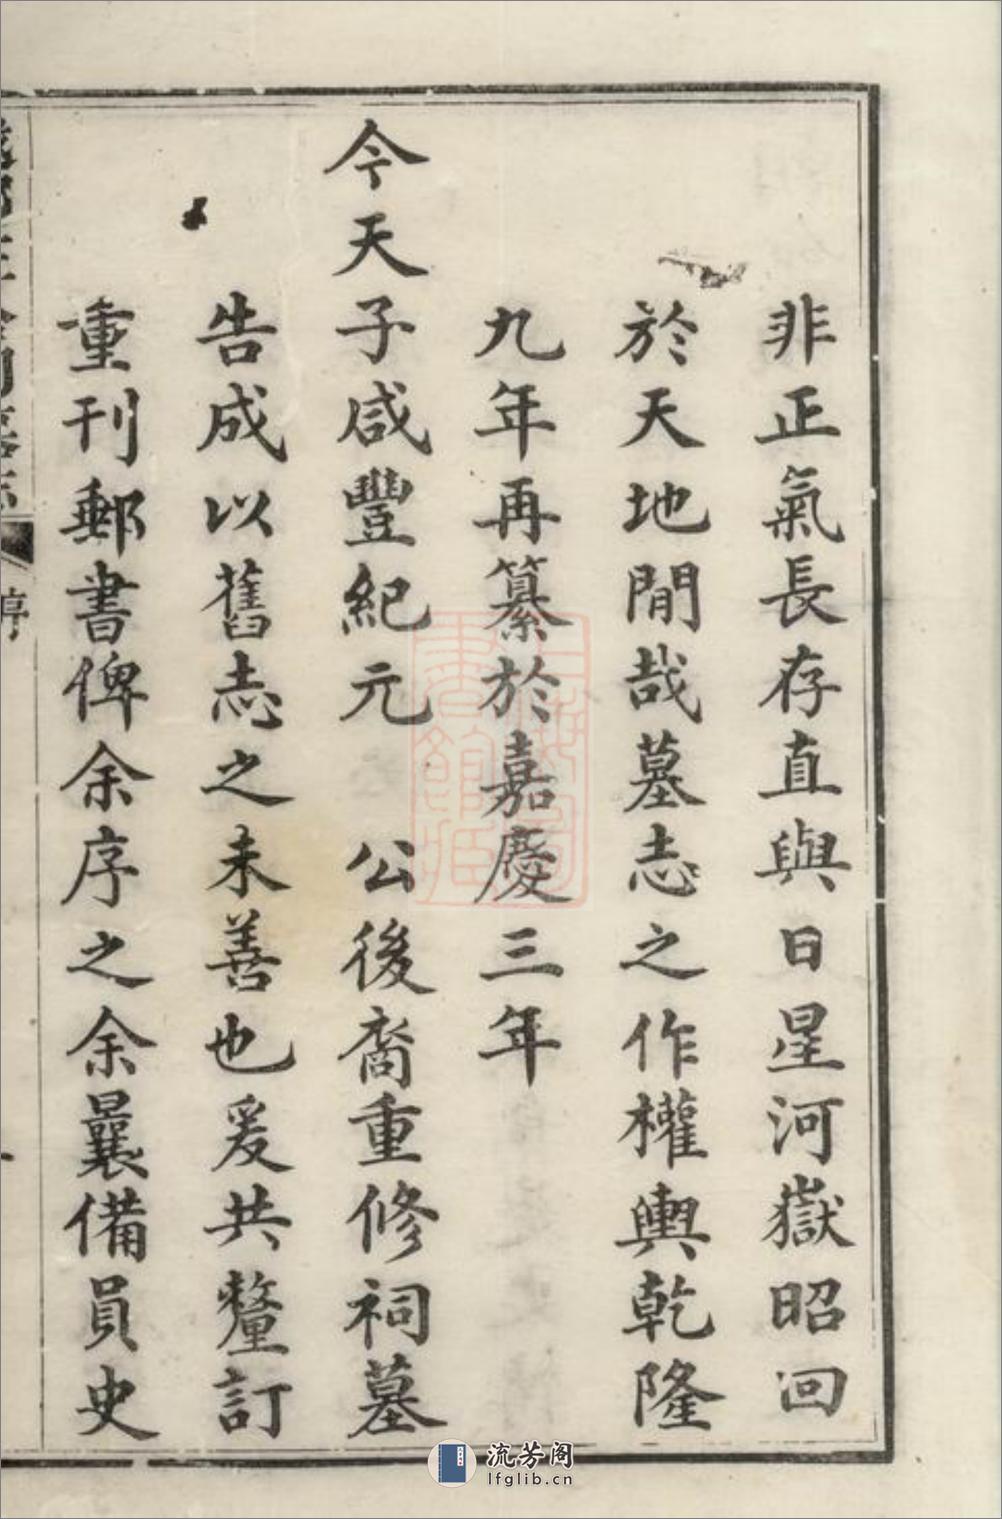 非正氣長存直與日星河嶽昭回
於天地閒哉墓志之作權輿乾隆
九年再纂於嘉慶三年
今天子咸豐紀元　公後裔重修祠墓
告成以舊志之未善也爰共釐訂
重刊郵書俾余序之余曩備員史
序
流芳阁
lfglib.cn